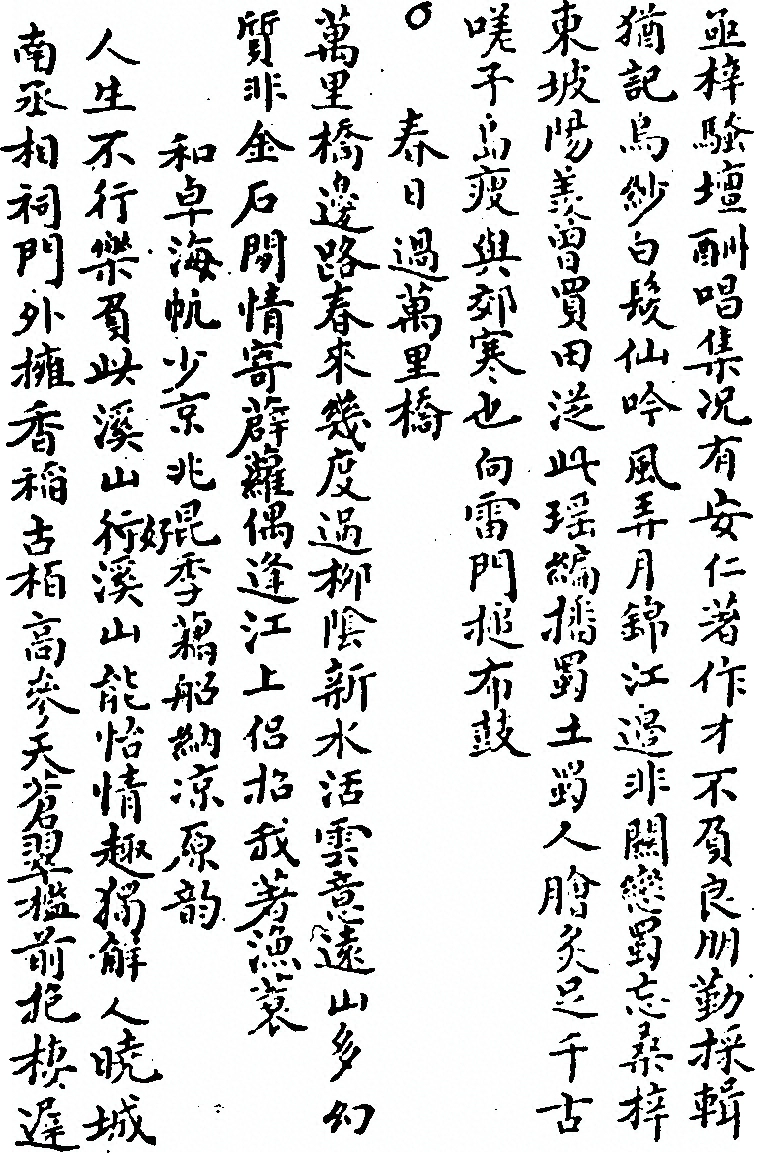 亟梓騷壇酬唱集況有安仁著作才不負良朋勤採輯
猶記烏紗白髮仙吟風弄月錦江邊非關戀蜀忘桑梓
東坡陽羨曾買田從此瑶編播蜀土蜀人膾炙足千古
嗟予島瘦與郊寒也向雷門搥布鼓
○春日過萬里橋
萬里橋邊路春來幾度過柳陰新水活雲意遠山多幻
質非金石閑情寄薜蘿偶逢江上侶招我著漁蓑
和卓海帆少京兆昆季藕船納凉原韵
人生不行樂負此溪山行好溪山能怡情趣獨解人曉城
南丞相祠門外擁香稻古柏高參天蒼翠檻前抱棲遲